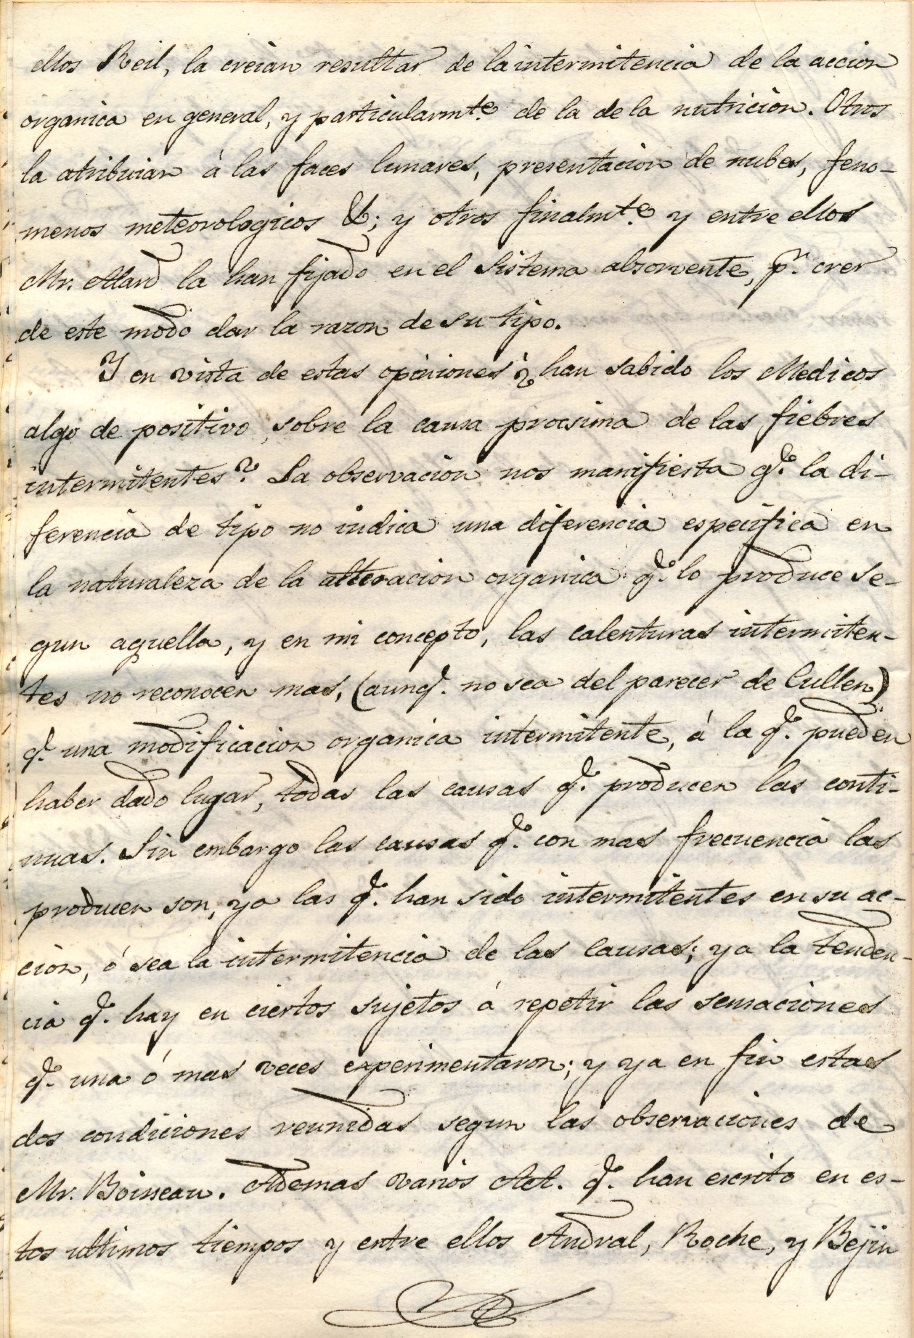 ellos Reil, la creian resultar de la intermitencia de la accion
organica en general, y particularmte. de la de la nutricion. Otros
la atribuian á las faces lunares, presentacion de nubes, feno-
menos meteorologicos &; y otros finalmte. y entre ellos
Mr. Alard la han fijado en el sistema absorvente, pr. crer
de este modo dar la razon de su tipo.
Y en vista de estas opiniones ¿han sabido los Medicos
algo de positivo, sobre la causa procsima de las fiebres
intermitentes? La observacion nos manifiesta qe. la di-
ferencia de tipo no indica una diferencia especifica en
la naturaleza de la alteracion organica qe. lo produce se-
gun aquella, y en mi concepto, las calenturas intermiten-
tes no reconocen mas, (aunq. no sea del parecer de Cullen)
q. una modificacion organica intermitente, á la qe. pueden
haber dado lugar, todas las causas qe. producen las conti-
nuas. Sin embargo las causas qe. con mas frecuencia las
producen son, ya las qe. han sido intermitentes en su ac-
cion, ó sea la intermitencia de las causas; ya la tenden-
cia qe. hay en ciertos sujetos á repetir las sensaciones
qe. una ó mas veces experimentaron; y ya en fin estas
dos condiciones reunidas segun las observaciones de
Mr. Boisseau. Ademas varios Aut. qe. han escrito en es-
tos ultimos tiempos y entre ellos Andral, Roche, y Bejin